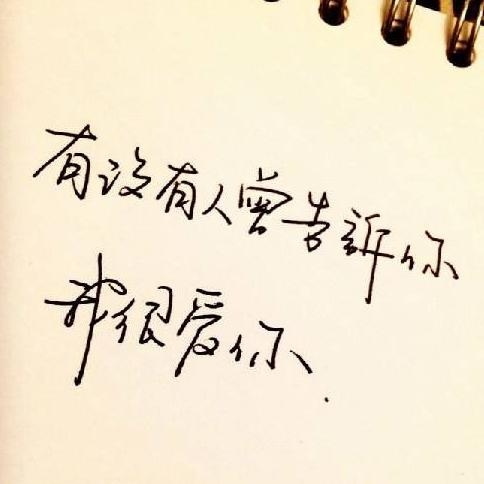 有没有人曾告訴你
我很爱你.